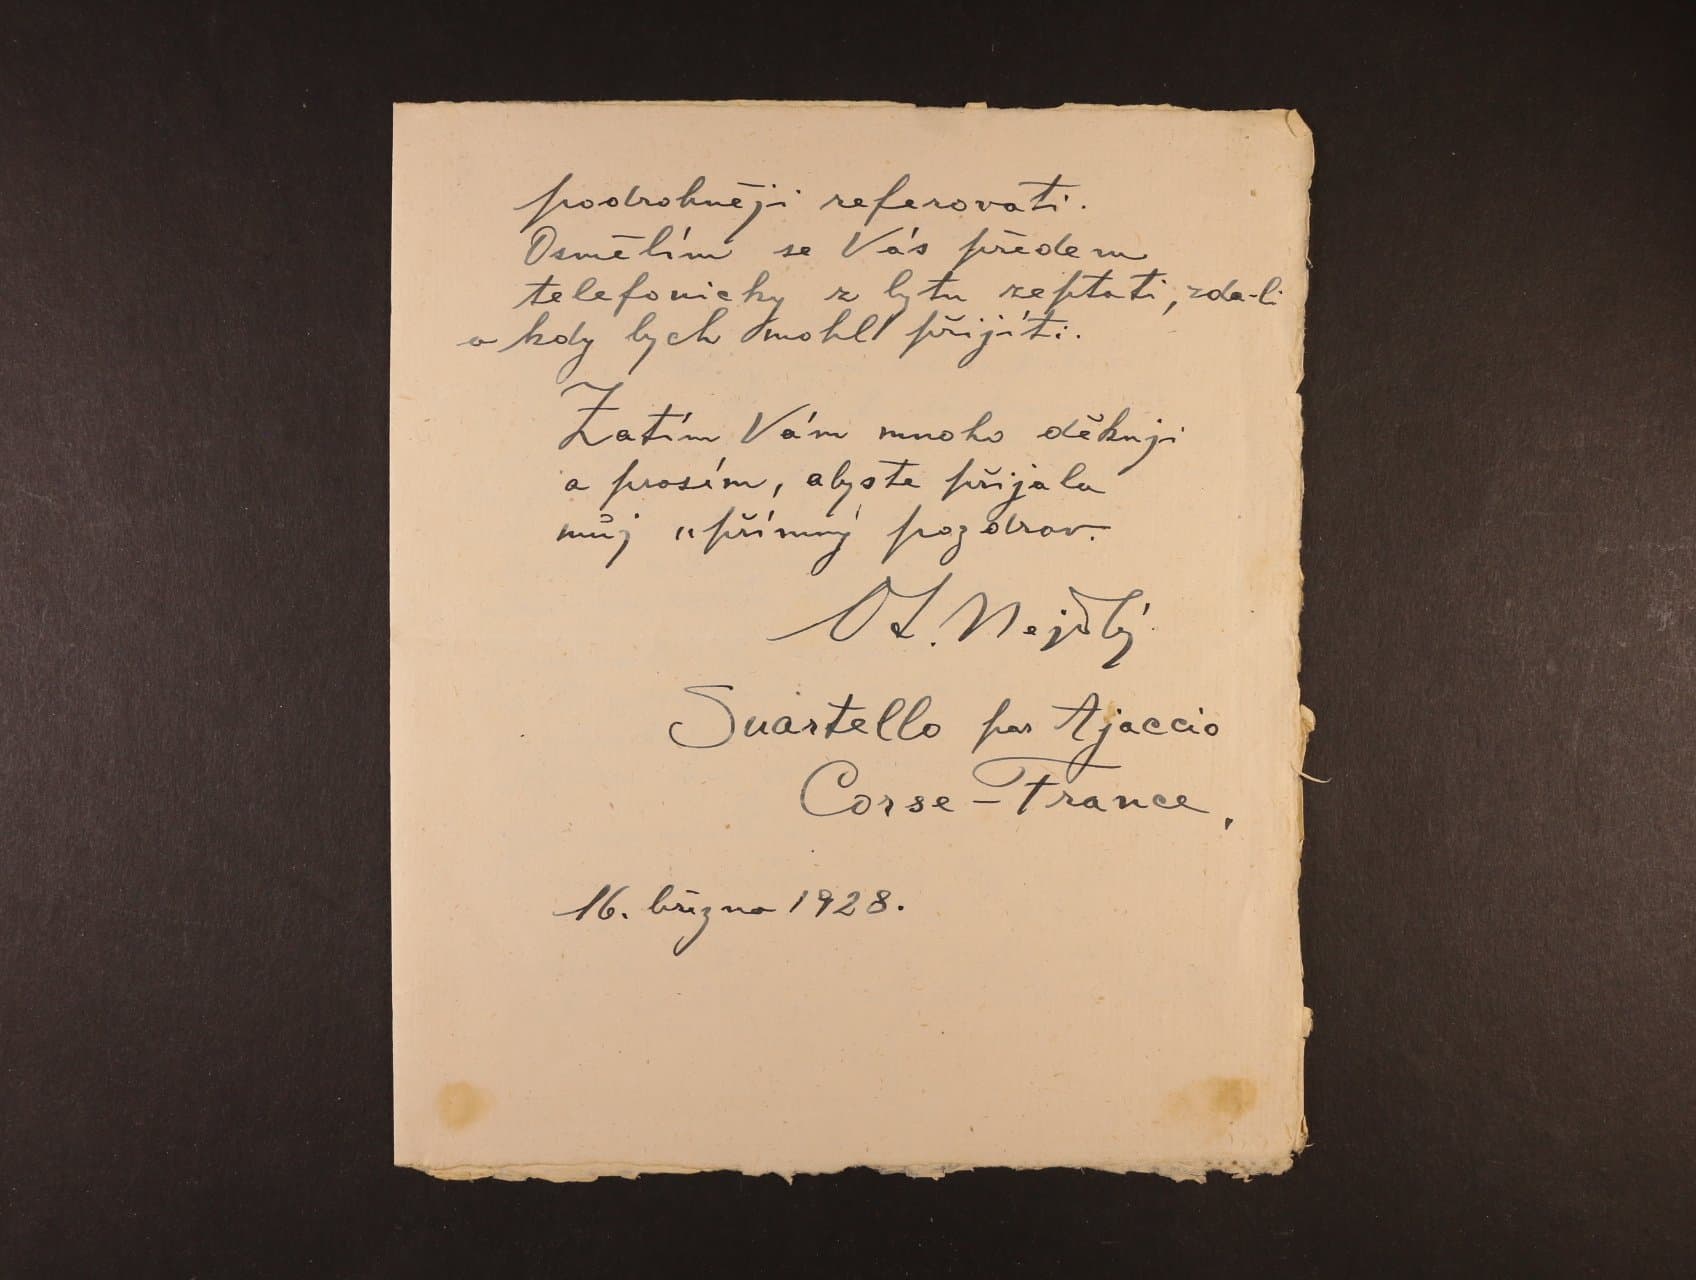 podrobněji referovati.
Osmělím se Vás předem
telefonicky z bytu zeptati, zda-li
a kdy bych mohl přijíti.
Zatím Vám mnoho děkuji
a prosím, abyste přijala
můj upřímný pozdrav.
Ot. Nejedlý
Suartello par Ajaccio
Corse – France,
16. března 1928.